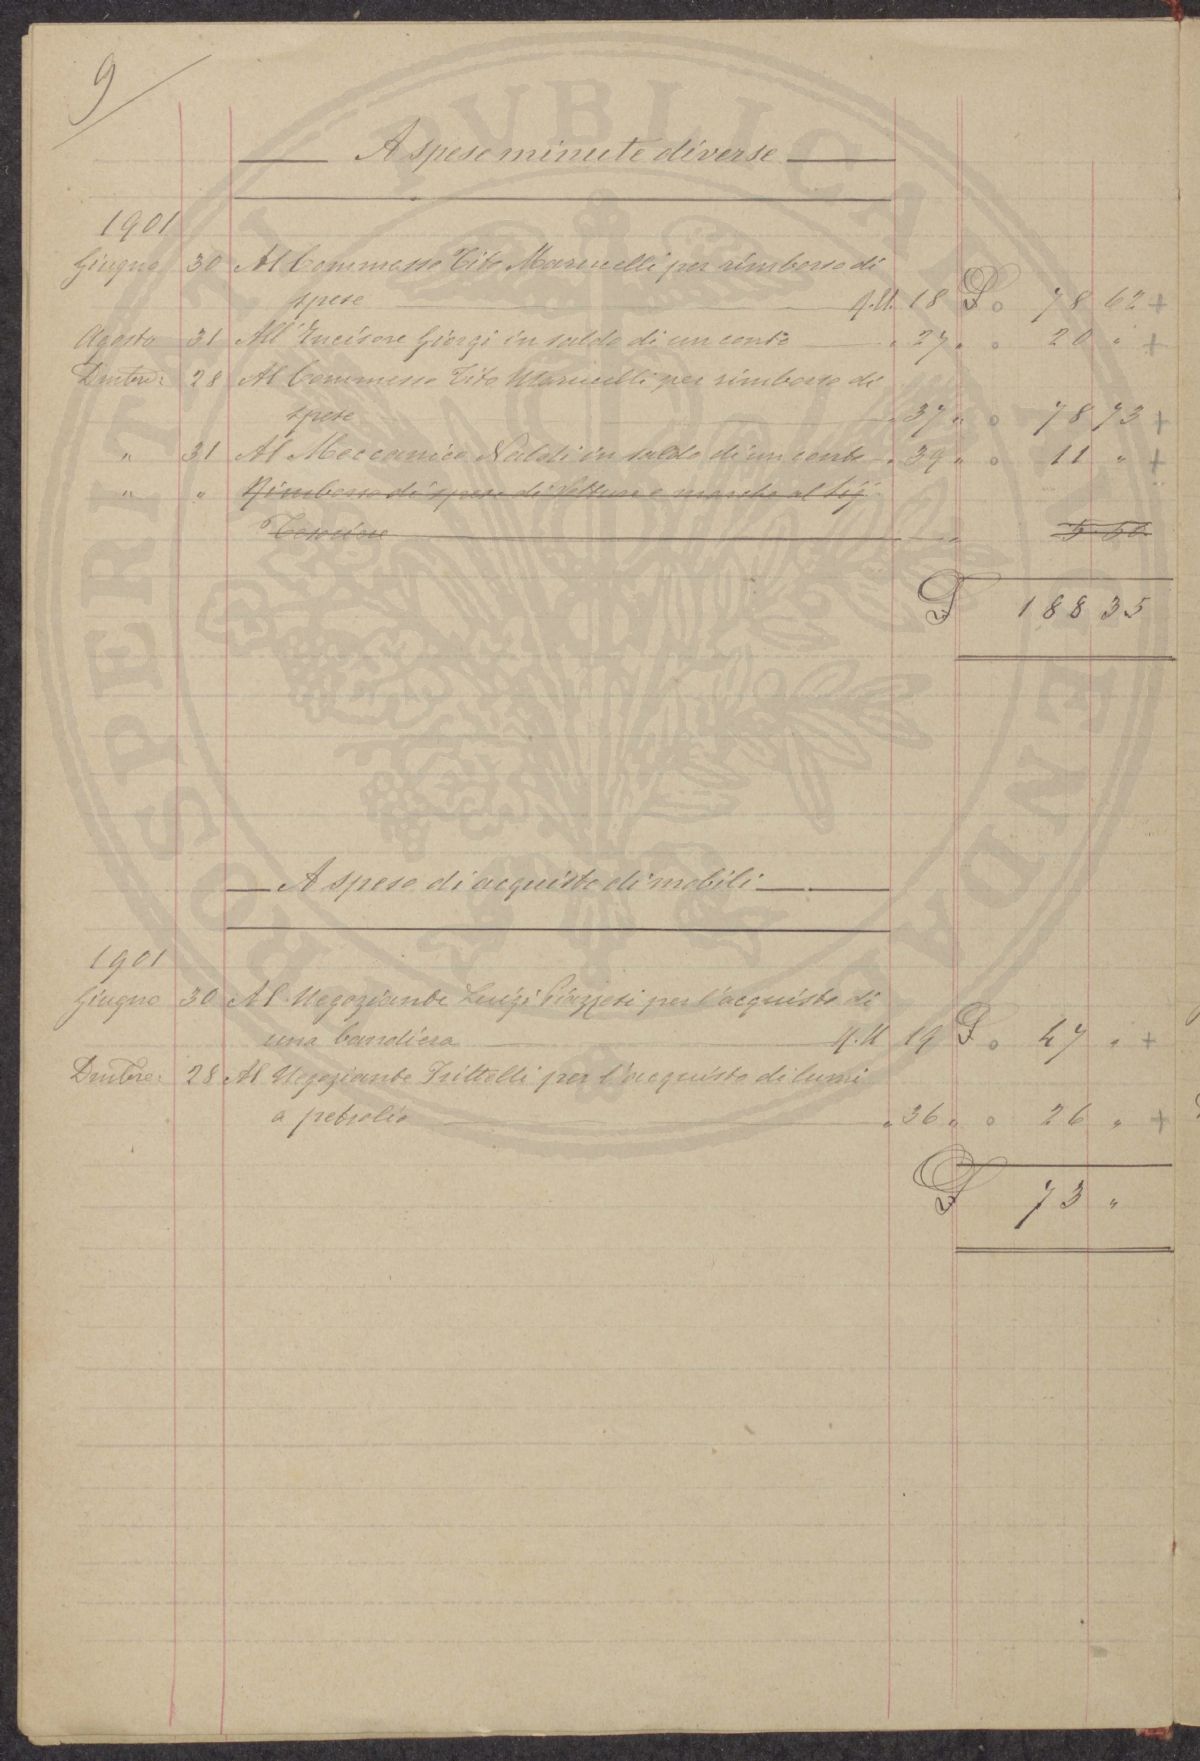 9
A spese minute diverse
1901
Giugno 30 Al Commesso Tito Marucelli per rimborso di
spese 18 78 62 +
Agosto 31 All'Incisore Giorgi in saldo di un conto " 27 " 20 " +
Dmbre: 28 Al Commesso Tito Marucelli per rimborso di
spese " 37 " 78 73 +
" 31 Al Meccanico Naldi in saldo di un conto " 39 " 11 " +
" " Rimborso di spese di vetture e marche al Sig.
5 60
188 35
A spese di acquisto di mobili
1901
Giugno 30 Al Negoziante Luigi Piazzesi per l'acquisto di
una bandiera 19 47 " +
Dmbre: 28 Al Negoziante Trittelli per l'acquisto di lumi
a petrolio " 36 " 26 " +
73 "
PROSPERITATI PVBLICAE AVGENDAE